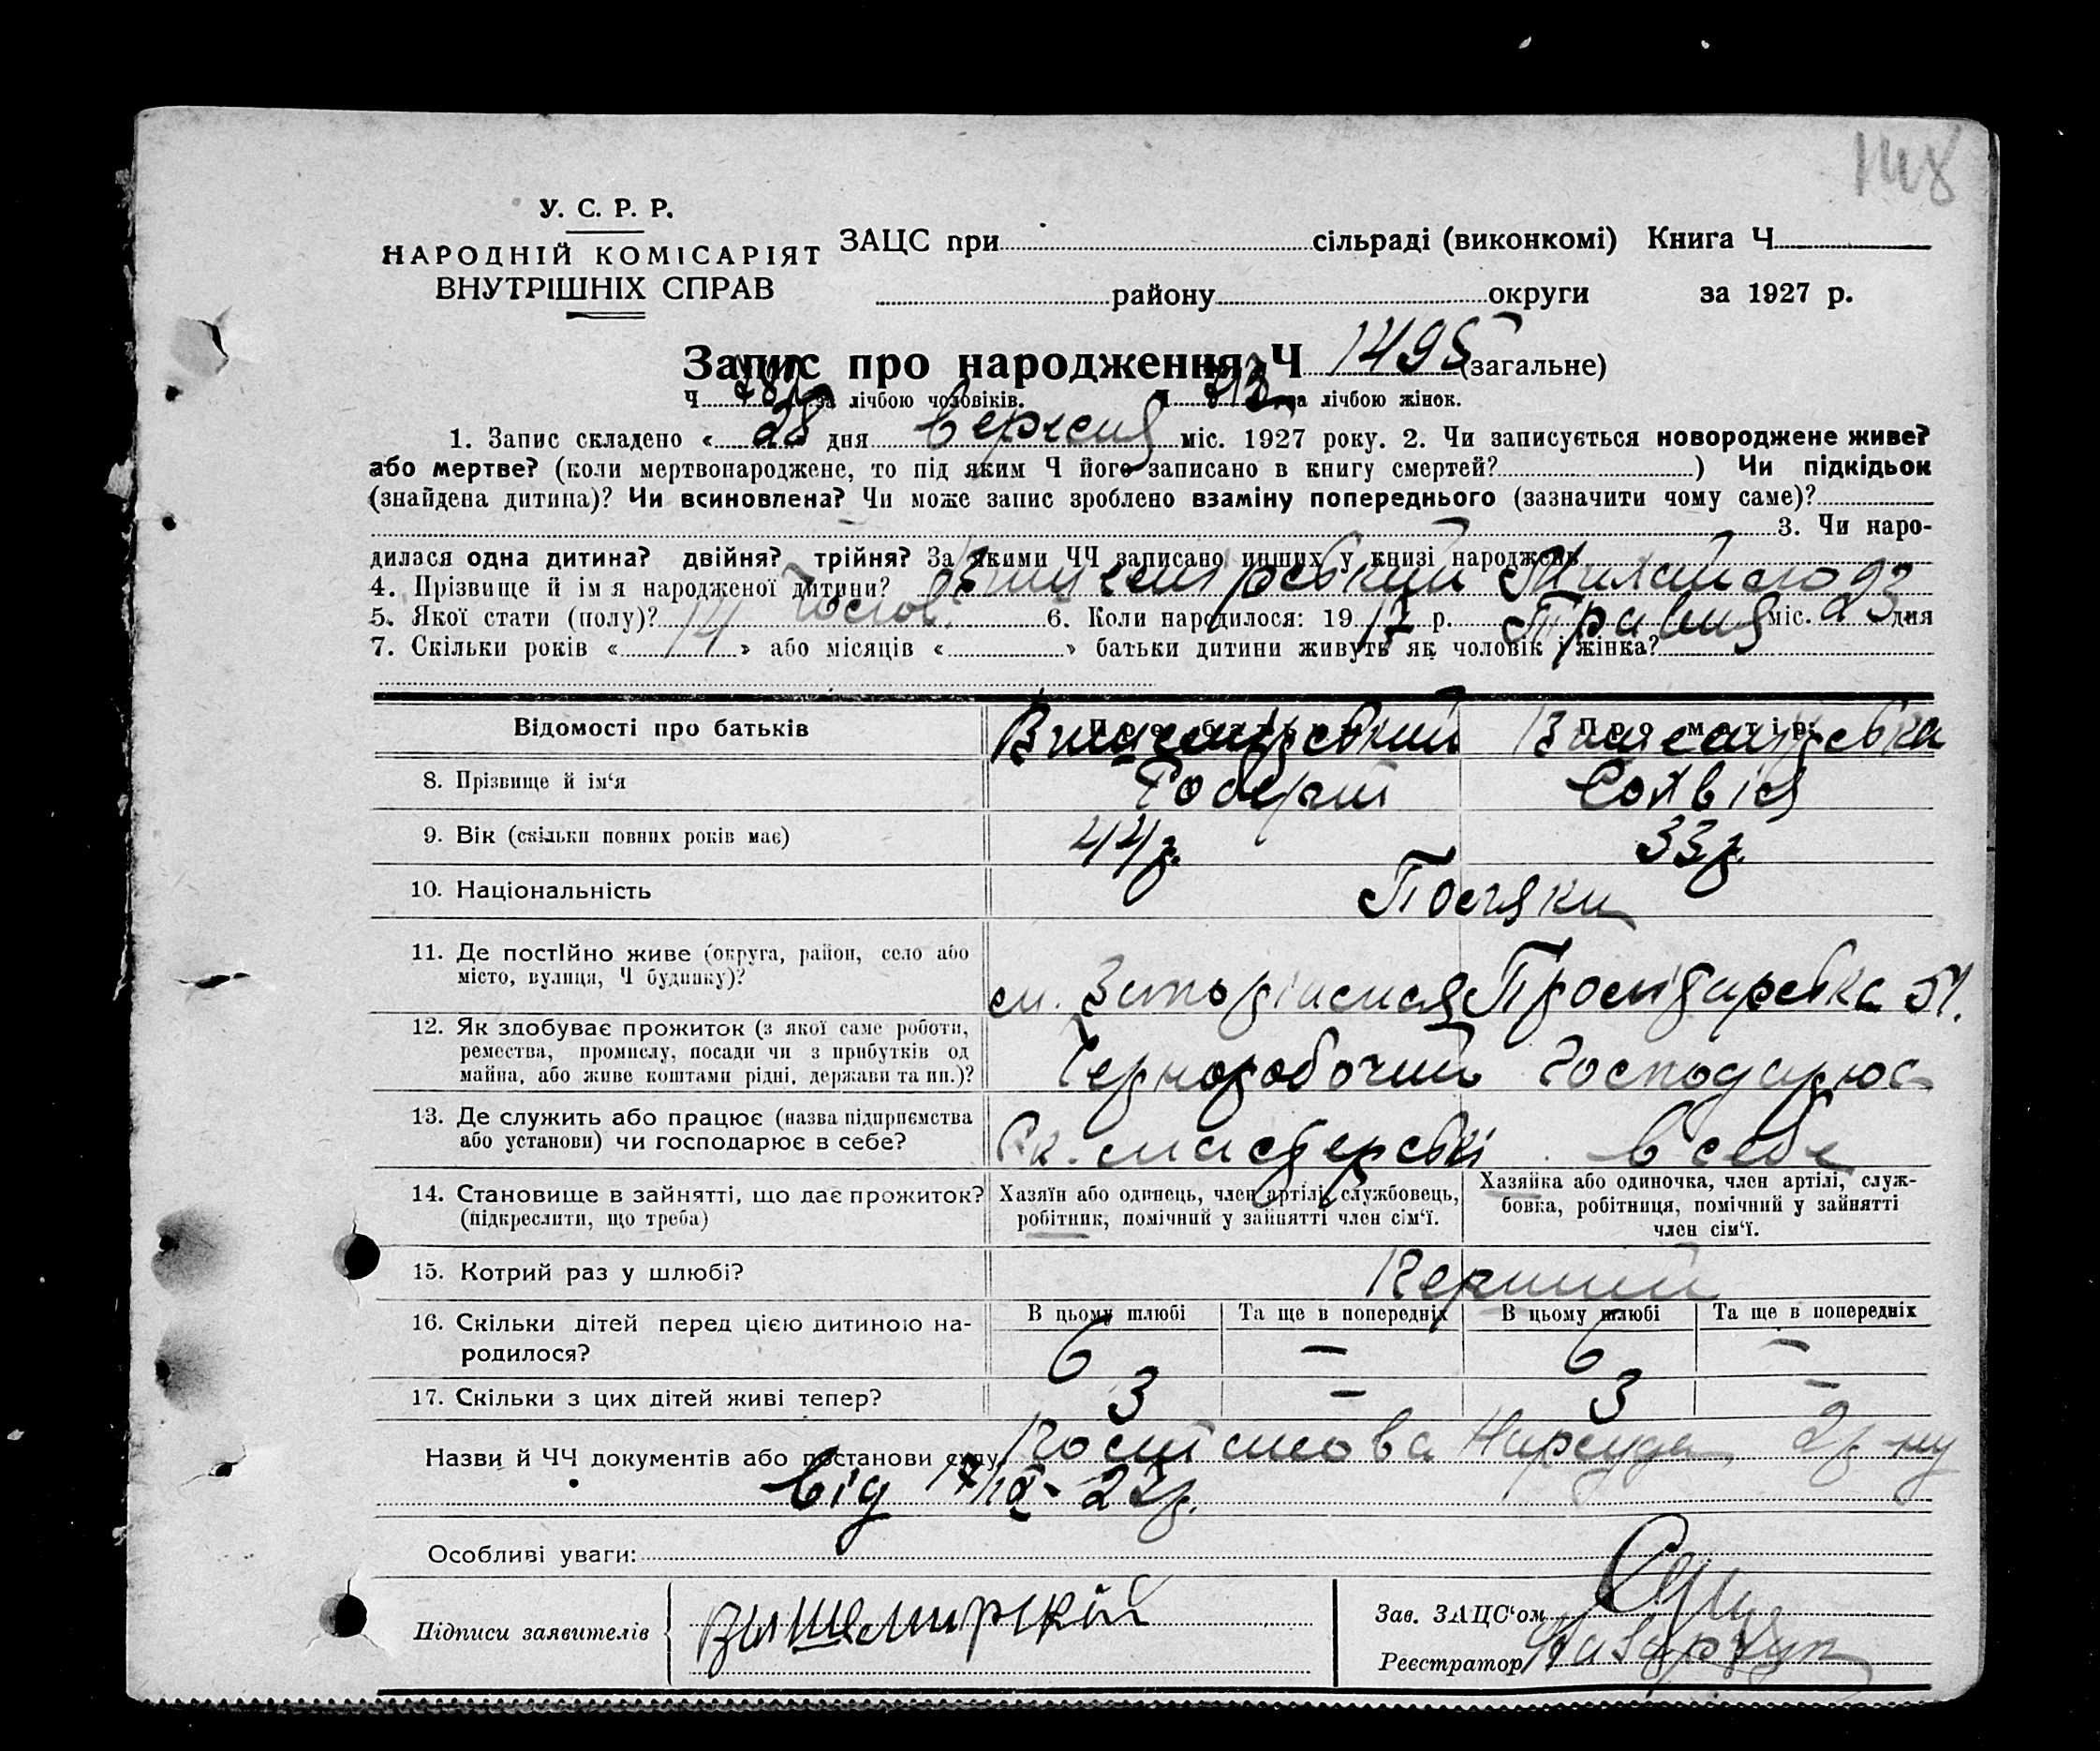 148
У. С. Р. Р.
НАРОДНІЙ КОМІСАРІЯТ
ВНУТРІШНІХ СПРАВ
ЗАЦС при сільраді (виконкомі) Книга Ч.
району округи за 1927 р.
Запис про народження Ч 1495 (загальне)
Ч за лічбою чоловіків. Ч за лічбою жінок.
1. Запис складено « 28 дня вересня міс. 1927 року. 2. Чи записується новороджене живе?
або мертве? (коли мертвонароджене, то під яким Ч його записано в книгу смертей? ) Чи підкідьок
(знайдена дитина)? Чи всиновлена? Чи може запис зроблено взаміну попереднього (зазначити чому саме)?
3. Чи наро-
дилася одна дитина? двійня? трійня? За якими ЧЧ записано инших у книзі народжень
4. Прізвище й ім я народженої дитини? Вишемірський
5. Якої стати (полу)? Чолов. 6. Коли народилося: 19 17 р. Травня міс. 23 дня
7. Скільки років « 14 » або місяців « » батьки дитини живуть як чоловік і жінка?
Відомості про батьків Про батька Про матір
Вишемірський Вишемірська
8. Прізвище й ім‘я Роберт
9. Вік (скільки повних років має) 44 р. 33 р.
10. Національність Поляки
11. Де постійно живе (округа, район, село або
місто, вулиця, Ч будинку)? 51.
12. Як здобуває прожиток (з якої саме роботи, Чорноробочий Господарює
ремества, промислу, посади чи з прибутків од
майна, або живе коштами рідні, держави та ин.)?
13. Де служить або працює (назва підприємства
або установи) чи господарює в себе? в себе
14. Становище в зайнятті, що дає прожиток?
(підкреслити, що треба)
Хазяїн або одинець, член артілі, службовець,
робітник, помічний у зайнятті член сім‘ї.
Хазяйка або одиночка, член артілі, служ-
бовка, робітниця, помічний у зайнятті
член сім‘ї.
15. Котрий раз у шлюбі? Перший
В цьому шлюбі Та ще в попередніх В цьому шлюбі Та ще в попередніх
16. Скільки дітей перед цією дитиною на-
родилося? 6 — 6 —
17. Скільки з цих дітей живі тепер? 3 — 3 —
Назви й ЧЧ документів або постанови суду Постанова Нарсуда 2 р-ну
від 17/IX- 27р.
Особливі уваги:
Підписи заявителів Вышемирскій
Зав. ЗАЦС‘ом
Реєстратор